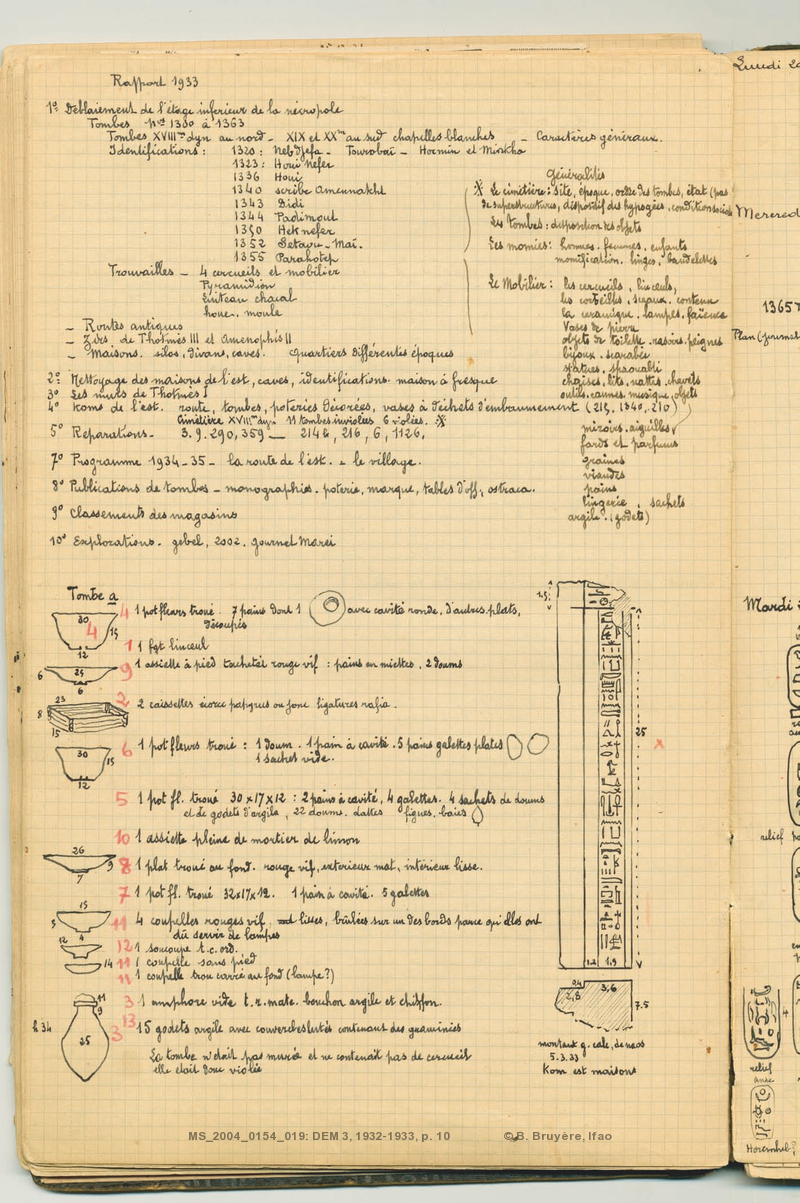 Rapport 1933
1º Déblaiement de l'étage inférieur de la nécropole
Tombes Nos 1300 à 1363
Tombes XVIIIme dyn au nord - XIX et XXme au sud chapelles blanches - Caractères généraux.
Identifications : 1320 : Nebdjefa - Tourobaï - Hormin et Minkho
1323 : Houi nefer
1336 Houi
1340 scribe Amennakht
1343 Didi
1344 Padimout
1350 Hek nefer
1352 Setaou - Maï.
1355 Parahotep
Trouvailles - 4 cercueils et mobilier
Pyramidion
linteau chacal
houe, moule
- Routes antiques
- Zirs, de Thotmès III et Amenophis II
- Maisons. silos, divans, caves. quartiers différentes époques
Généralités
※ Le cimetière : site, époque, ordre des tombes, état (pas
de superstructures, dispositif des hypogées, condition sociale
Les tombes : disposition des objets
Les momies : hommes, femmes, enfants
momification. linges. bandelettes
Le Mobilier : les cercueils, linceuls,
les corbeilles, sceaux. contenu
la céramique. lampes. faïence
Vases de pierre
objets de toilette. rasoirs. peignes
bijoux. scarabée
statues, shaouabti
chaises, lits, nattes, chevets
outils. cannes, musique, objets
2º Nettoyage des maisons de l'est, caves, identifications. maison à fresque
3º Les murs de Thotmès I
4º Koms de l'est. route, tombes, poteries décorées, vases à déchets d'embaumement (215, 1340, 210)
Cimetière XVIIIme dyn. 11 tombes inviolées 6 violées. ※
5º Réparations. 3. 9. 290, 359 — 214b, 216, 6, 1126,
7º Programme 1934-35 - la route de l'est. - le village.
8º Publications de tombes - monographies. poterie, marque, tables d'off, ostraca.
9º Classements des magasins
10º Explorations. gebel, 2002. Journel Marei
miroirs. aiguilles
fards et parfums
graines
viandes
pains
lingerie, sachets
argile. (godets)
Tombe a
4 1 pot fleurs troué. 7 pains dont 1 avec cavité ronde, d'autres plats,
découpés
30 4 15 12
1 1 fgt linceul
9 1 assiette à pied tacheté rouge vif : pains en miettes, 2 doums
6 25 6
2 2 caissettes écorce papyrus ou jonc ligatures rafia.
23 8 15
6 1 pot fleurs troué : 1 doum. 1 pain à cavité. 5 pains galettes plates
1 sachet vide.
30 15 12
5 1 pot fl. troué 30 x 17 x 12 : 2 pains à cavité, 4 galettes. 4 sachets de doums
et de godets d'argile, 22 doums. dattes figues, baies
10 1 assiette pleine de mortier de limon
8 1 plat troué au fond. rouge vif, exterieur mat, intérieur lisse.
26 9 7
7 1 pot fl. troué 32x17x12. 1 pain à cavité. 5 galettes
11 4 coupelles rouges vif, lisses, brûlées sur un des bords parce qu'elles ont
dû servir de lampes
15 5 4
12 1 soucoupe t.c. ord.
12
11 1 coupelle sans pied
14
11 1 coupelle trou carré au fond (lampe?)
3 1 amphore vide t.r. mate. bouchon argile et chiffon.
11 9 h 34 25 3
13 15 godets argile avec couvercles lutés contenant des graminées
La tombe n'était pas murée et ne contenait pas de cercueil
elle était donc violée
1,5
25
x
1.2 1,9
2,4 2,8 3,6 7.5
montant g. calc. de naos
5.3.33
Kom est maisons
Lundi 20
Mercred
1365 T
Plan (Journal
Mardi
relief
relief
4
anse
Horemheb?
MS_2004_0154_019: DEM 3, 1932-1933, p. 10 © B. Bruyère, Ifao